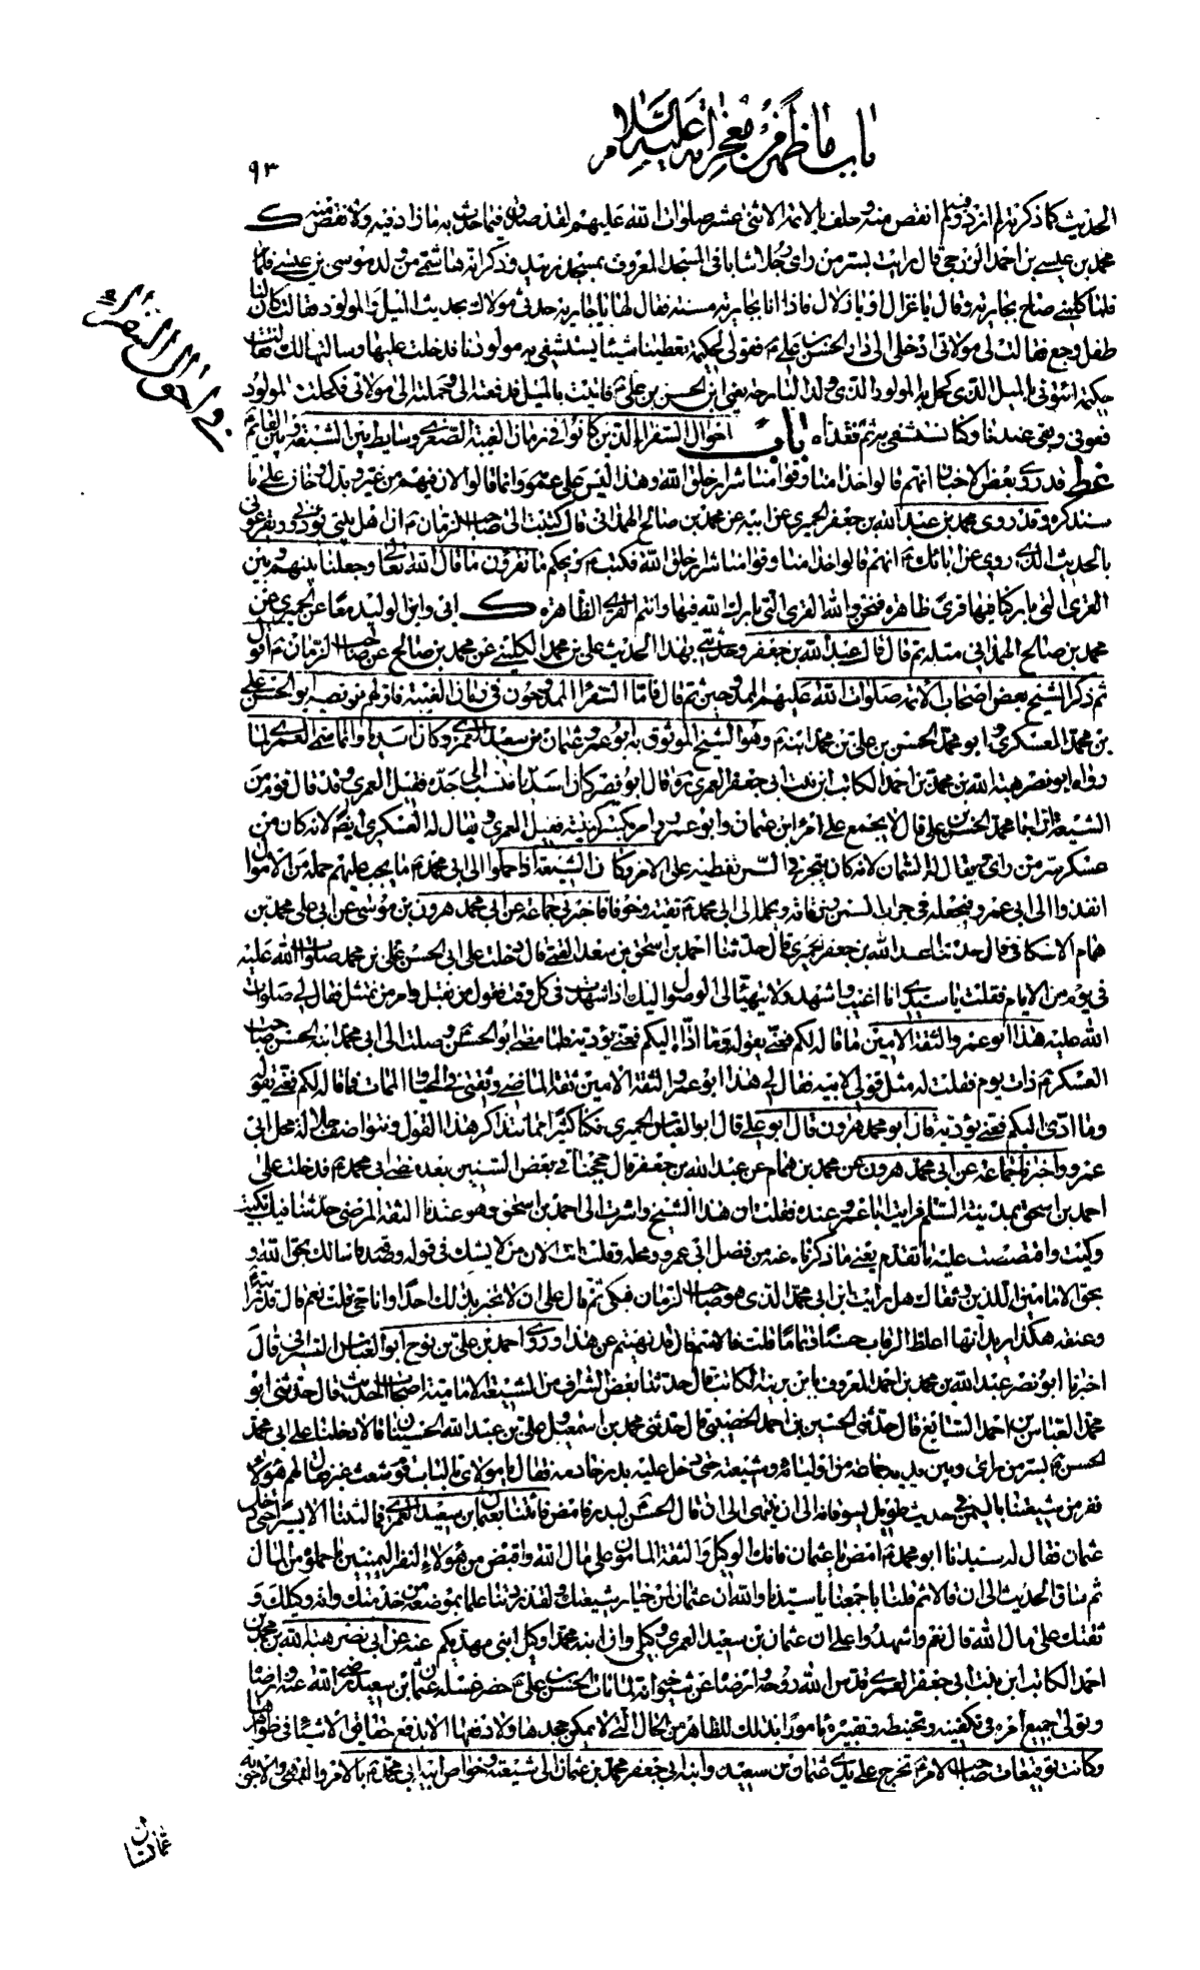 باب ما ظهر من معجزاته عليه السلام
٩٣
الحديث كما ذكرته لم ازد فيه ولم انقص منه وحلف بالائمة الاثنى عشر صلوات الله عليهم لقد صدق فيما حدث به ما زاد فيه ولا نقص منه ك
محمد بن عيسى بن احمد الزرجي قال رايت بسر من راى رجلا شابا فى المسجد المعروف بمسجد زبيد وذكر انه هاشمي من ولد موسى بن عيسى
فلما كلمني صاح بجارية وقال يا غزال او يا زلال فاذا انا بجارية مسنة فقال لها يا جارية حدثي مولاك بحديث الميل والمولود فقالت كان لنا
طفل وجع فقالت لي مولاتي ادخلي الى دار الحسن بن علي ع فقولي لحكيمة تعطينا شيئا يستشفى به مولودنا فدخلت عليها وسالتها ذلك فقالت
حكيمة ائتوني بالميل الذي كحل به المولود الذي ولد البارحة يعني ابن الحسن بن علي ع فاتيت بالميل فدفعته الي وحملته الى مولاتي فكحلت المولود
فعوفي وبقي عندنا وكنا نستشفي به ثم فقدناه باب احوال السفراء الذين كانوا في زمان الغيبة الصغرى وسايط بين الشيعة وبين القائم ع
غط قد روي في بعض الاخبار انهم قالوا خدامنا وقوامنا شرار خلق الله وهذا ليس على عمومه وانما قالوا لان فيهم من غير وبدل وخان على ما
سنذكره وقد روى محمد بن عبد الله بن جعفر الحميري عن ابيه عن محمد بن صالح الهمداني قال كتبت الى صاحب الزمان ع ان اهل بيتي يؤذوني ويقرعوني
بالحديث الذي روي عن ابائك ع انهم قالوا خدامنا وقوامنا شرار خلق الله فكتب ع ويحكم ما تقرؤن ما قال الله تعالى وجعلنا بينهم وبين
القرى التي باركنا فيها قرى ظاهرة فنحن والله القرى التي بارك الله فيها وانتم القرى الظاهرة ك ابي وابن الوليد معا عن الحميري عن
محمد بن صالح الهمداني مثله ثم قال قال عبد الله بن جعفر وحدثني بهذا الحديث علي بن محمد الكليني عن محمد بن صالح عن صاحب الزمان ع اقول
ثم ذكر الشيخ بعض اصحاب الائمة صلوات الله عليهم الممدوحين ثم قال فاما السفراء الممدوحون في زمان الغيبة فاولهم من نصبه ابو الحسن علي
بن محمد العسكري وابو محمد الحسن بن علي بن محمد ابنه ع وهو الشيخ الموثوق به ابو عمرو عثمان بن سعيد العمري وكان اسديا وانما سمي العمري لما
رواه ابو نصر هبة الله بن محمد بن احمد الكاتب ابن بنت ابي جعفر العمري ره قال ابو نصر كان اسديا فنسب الى جده فقيل العمري وقد قال قوم من
الشيعة ان ابا محمد الحسن بن علي قال لا يجمع على امرء ابن عثمان وابو عمرو وامر بكسر كنيته فقيل العمري ويقال له العسكري ايضا لانه كان من
عسكر سر من راى ويقال له السمان لانه كان يتجر في السمن تغطية على الامر وكان الشيعة اذا حملوا الى ابي محمد ع ما يجب عليهم حمله من الاموال
انفذوا الى ابي عمرو فيجعله في جراب السمن وزقاقه ويحمله الى ابي محمد ع تقية وخوفا فاخبرني جماعة عن ابي محمد هرون بن موسى عن ابي علي محمد بن
همام الاسكافي قال حدثنا عبد الله بن جعفر الحميري قال حدثنا احمد بن اسحق بن سعد القمي قال دخلت على ابي الحسن علي بن محمد صلوات الله عليه
في يوم من الايام فقلت يا سيدي انا اغيب واشهد ولا يتهيأ لي الوصول اليك اذا شهدت في كل وقت فقول من نقبل وامر من نمتثل فقال لي صلوات
الله عليه هذا ابو عمرو الثقة الامين ما قاله لكم فعني يقوله وما اداه اليكم فعني يؤديه فلما مضى ابو الحسن ع وصلت الى ابي محمد ابنه الحسن صاحب
العسكر ع ذات يوم فقلت له مثل قولي لابيه فقال لي هذا ابو عمرو الثقة الامين ثقة الماضي وثقتي في الحيا والممات فما قاله لكم فعني يقوله
وما ادى اليكم فعني يؤديه قال ابو محمد هرون قال ابو علي قال ابو العباس الحميري فكنا كثيرا ما نتذاكر هذا القول ونتواصف جلالة محل ابي
عمرو واخبرنا جماعة عن ابي محمد هرون عن محمد بن همام عن عبد الله بن جعفر قال حججنا في بعض السنين بعد مضي ابي محمد ع فدخلت على
احمد بن اسحق بمدينة السلام فرايت ابا عمرو عنده فقلت ان هذا الشيخ واشرت الى احمد بن اسحق وهو عندنا الثقة المرضي حدثنا فيك بكيت
وكيت واقتصصت عليه ما تقدم يعني ما ذكرناه عنه من فضل ابي عمرو ومحله وقلت انت الان من لا يشك في قوله وصدقه فاسالك بحق الله و
بحق الامامين اللذين وثقاك هل رايت ابن ابي محمد الذي هو صاحب الزمان فبكى ثم قال على ان لا تخبر بذلك احدا وانا حي قلت نعم قال قد رايته
وعنقه هكذا يريد انها اغلظ الرقاب حسنا وتماما قلت فالاسم قال قد نهيتم عن هذا وروى احمد بن علي بن نوح ابو العباس السيرافي قال
اخبرنا ابو نصر عبد الله بن محمد بن احمد المعروف بابن برينة الكاتب قال حدثنا بعض الشراف من الشيعة الامامية اصحاب الحديث قال حدثني ابو
محمد العباس بن احمد الصائغ قال حدثني الحسين بن احمد الخصيبي قال حدثني محمد بن اسمعيل وعلي بن عبد الله الحسنيان قالا دخلنا على ابي محمد
الحسن ع بسر من راى وبين يديه جماعة من اوليائه وشيعته حتى دخل عليه بدر خادمه فقال يا مولاي بالباب قوم شعث غبر فقال لهم هؤلاء
نفر من شيعتنا باليمن في حديث طويل يسوقانه الى ان ينتهي الى ان قال الحسن ع لبدر فامض فائتنا بعثمان بن سعيد العمري فما لبثنا الا يسيرا حتى دخل
عثمان فقال له سيدنا ابو محمد ع امض يا عثمان فانك الوكيل والثقة المامون على مال الله واقبض من هؤلاء النفر اليمنيين ما حملوه من المال
ثم ساق الحديث الى ان قالا ثم قلنا باجمعنا يا سيدنا والله ان عثمان لمن خيار شيعتك ولقد زدتنا علما بموضعه من خدمتك وانه وكيلك و
ثقتك على مال الله قال نعم واشهدوا على ان عثمان بن سعيد العمري وكيلي وان ابنه محمدا وكيل ابني مهديكم عنه عن ابي نصر هبة الله بن محمد بن
احمد الكاتب ابن بنت ابي جعفر العمري قدس الله روحه وارضاه عن شيوخه انه لما مات الحسن بن علي ع حضر غسله عثمان بن سعيد رضي الله عنه وارضاه
وتولى جميع امره في تكفينه وتحنيطه وتقبيره مامورا بذلك للظاهر من الحال التي لا يمكن جحدها ولا دفعها الا بدفع حقائق الاشياء في ظواهرها
وكانت توقيعات صاحب الامر ع تخرج على يدي عثمان بن سعيد وابنه ابي جعفر محمد بن عثمان الى شيعته وخواص ابيه ابي محمد ع بالامر والنهي والاجوبة